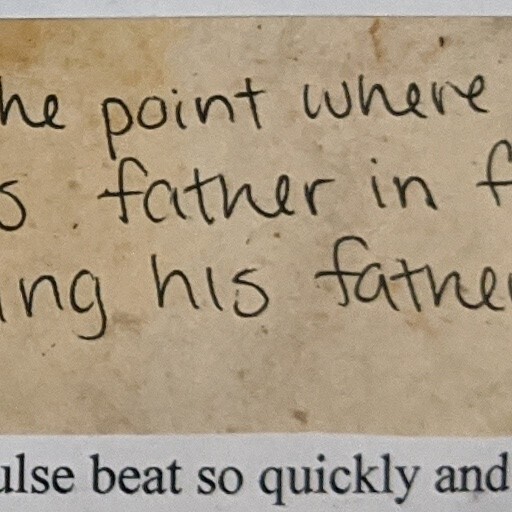 he point where
s. father in f
ing his father
ulse beat so quickly and